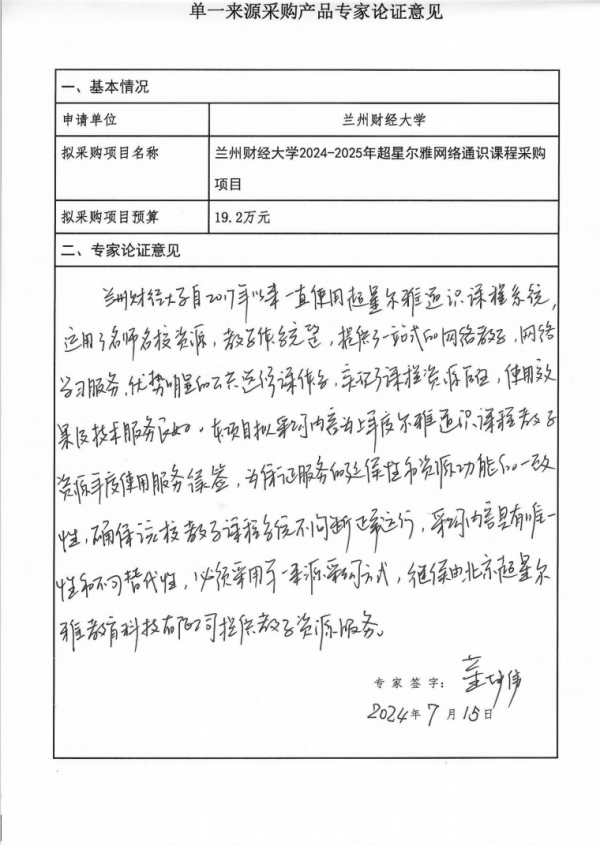 单一来源采购产品专家论证意见
一、基本情况
申请单位
兰州财经大学
拟采购项目名称
兰州财经大学2024-2025年超星尔雅网络通识课程采购
项目
拟采购项目预算
19.2万元
二、专家论证意见
兰州财经大学自2017年以来一直使用超星尔雅通识课程系统,
运用了名师名校资源,教学体系完整,提供了一站式的网络教学、网络
学习服务,优势明显的公共选修课平台,实现了课程资源,使用效
果及技术服务良好。本项目拟采购内容为上年度尔雅通识课程教学
资源年度使用服务续签,为保证服务的延续性和资源功能的一致
性,确保该校教学课程系统不间断正常运行,采购内容具有唯一
性和不可替代性,必须采用单一来源采购方式,继续由北京超星尔
雅教育科技有限公司提供教学资源服务。
专家签字:
2024年7月15日